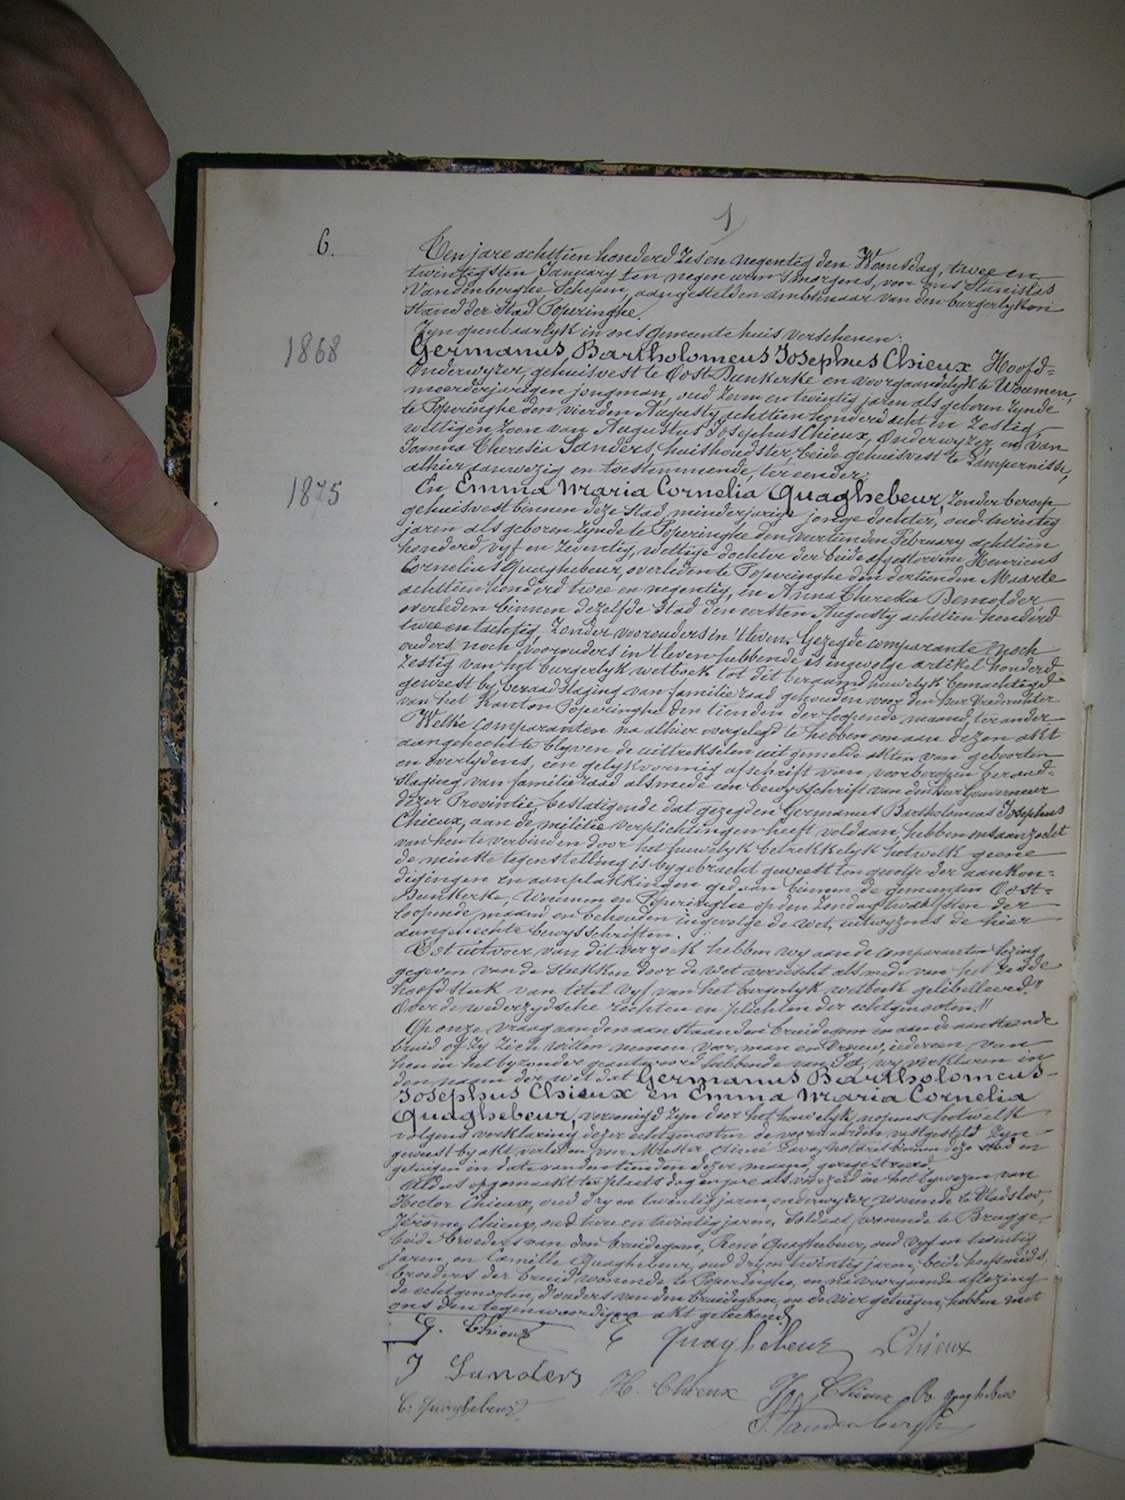 1
6.
Ten jare achttien honderd zes en negentig den Woensdag, twee en
twintigsten January ten negen uren 's morgens, voor ons Stanislas
Vandenberghe Schepen, aangestelden ambtenaar van den burgerlyken
stand der Stad Poperinghe.
Zyn openbaarlyk in ons gemeentehuis verschenen:
1868
Germanus, Bartholomeus Josephus Chieux Hoofd=
Onderwyzer, gehuisvest te Oost-Dunkerke en voorgaandelyk te Woumen,
meerderjarigen jongman, oud zeven en twintig jaren als geboren zynde
te Poperinghe den vierden Augusty achttien honderd acht en zestig,
wettigen zoon van Augustus Josephus Chieux, Onderwyzer, en van
Joanna Theresia Sanders, huishoudster, beide gehuisvest te Lampernisse,
alhier aanwezig en toestemmende, ter eender;
1875
En Emma Maria Cornelia Quaghebeur, zonder beroep
gehuisvest binnen deze Stad minderjarige jonge dochter, oud twintig
jaren als geboren zynde te Poperinghe den veertienden February achttien
honderd vyf en zeventig, wettige dochter der beide afgestorven Henricus
Cornelius Quaghebeur, overleden te Poperinghe den dertienden Maarte
achttien honderd twee en negentig, en Anna Theresia Demolder
overleden binnen dezelfde Stad den eersten Augusty achttien honderd
twee en tachtig, zonder voorouders in 't leven. Gezegde comparante noch
ouders, noch voorouders in 't leven hebbende is ingevolge artikel honderd
zestig van het burgerlyk wetboek tot dit beraamd huwelyk bemachtigd
geweest by beraadslaging van familieraad gehouden voor den heer Vrederechter
van het kanton Poperinghe den tienden der loopende maand, ter ander
Welke comparanten na alhier overgelegd te hebben om aan dezen akt
aangehecht te blyven de uittrekselen uit gemelde akten van geboorten
en overlydens, een gelykvormig afschrift van voorberoepen beraad=
slaging van familieraad alsmede een bewysschrift van den heer Gouverneur
dezer Provintie, bestatigende dat gezegden Germanus Bartholomeus Josephus
Chieux, aan de militie verplichtingen heeft voldaan, hebben ons aanzocht
van hen te verbinden door het huwelyk betrekkelyk hetwelk geene
de minste tegenstelling is bygebracht geweest ten gevolge der aankon=
digingen en aanplakkingen gedaan binnen de gemeenten Oost=
Dunkerke, Woumen en Poperinghe op den Zondag twaalfsten der
loopende maand en behouden ingevolge de wet, uitwyzens de hier
aangehechte bewysschriften.
Tot uitvoer van dit verzoek hebben wy aan de comparanten lezing
gegeven van de stukken door de wet vereischt alsmede van het zesde
hoofdstuk van titel vyf van het burgerlyk wetboek gelibelleerd:
Over de wederzydsche rechten en plichten der echtgenooten."
Op onze vraag aan den aanstaanden bruidegom en aan de aanstaande
bruid of zy zich willen nemen voor man en vrouw, iedereen van
hen in het byzonder geantwoord hebbende van Ja, wy verklaren in
den naam der wet dat Germanus Bartholomeus
Josephus Chieux en Emma Maria Cornelia
Quaghebeur, vereenigd zyn door het huwelyk, nopens hetwelk
volgens verklaring dezer echtgenooten de voorwaarden vastgesteld zyn
geweest by akt verleden voor Meester Aimé Lava, notaris binnen deze stad en
getuigen in date van den tienden dezer maand, geregistreerd.
Aldus opgemaakt ter plaats dag en jare als voorzeid in het bywezen van
Hector Chieux, oud dry en twintig jaren, onderwyzer, wonende te Vladsloo,
Jérôme Chieux, oud een en twintig jaren, Soldaat, wonende te Brugge,
beide broeders van den bruidegom, René Quaghebeur, oud vyf en twintig
jaren, en Camille Quaghebeur, oud dry en twintig jaren, beide hoefsmids,
broeders der bruid wonende te Poperinghe, en na voorgaande aflezing
de echtgenooten, d'ouders van den bruidegom, en de vier getuigen, hebben met
ons den tegenwoordigen akt geteekend.
G. Chieux E Quaghebeur Chieux
J Sanders H. Chieux Jer Chieux R. Quaghebeur
C. Quaghebeur S. Vandenberghe